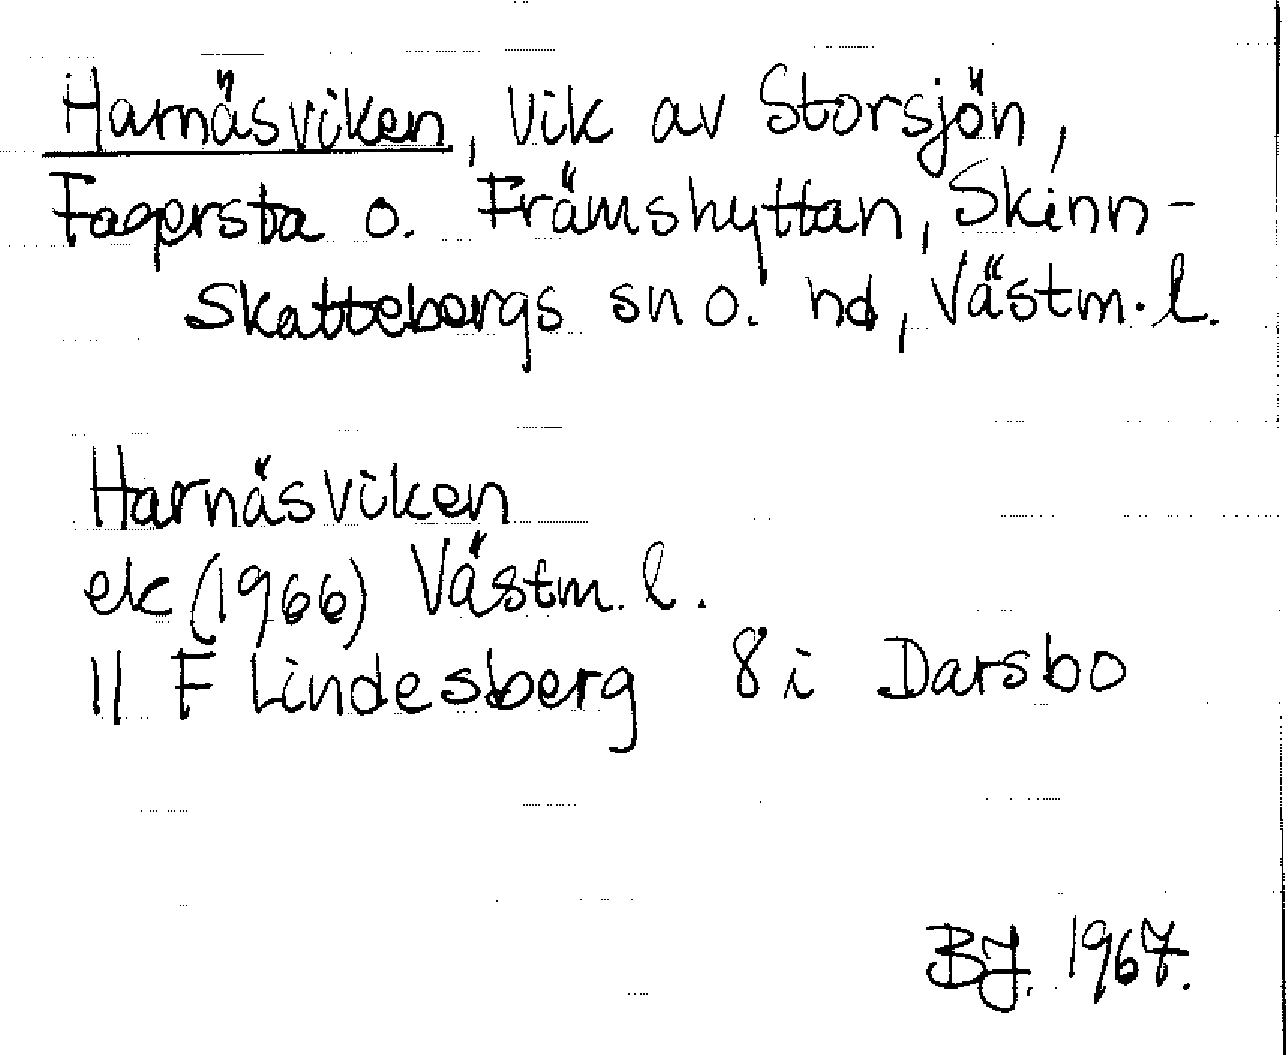 Harnäsviken, vik av Storsjön,
Fagersta o. Främshyttan, Skinn-
Skattebergs sn o. hd, Västm. l.
Harnäsviken
ek (1966) Västm. l.
11 F Lindesberg 8 i Darsbo
BJ. 1967.